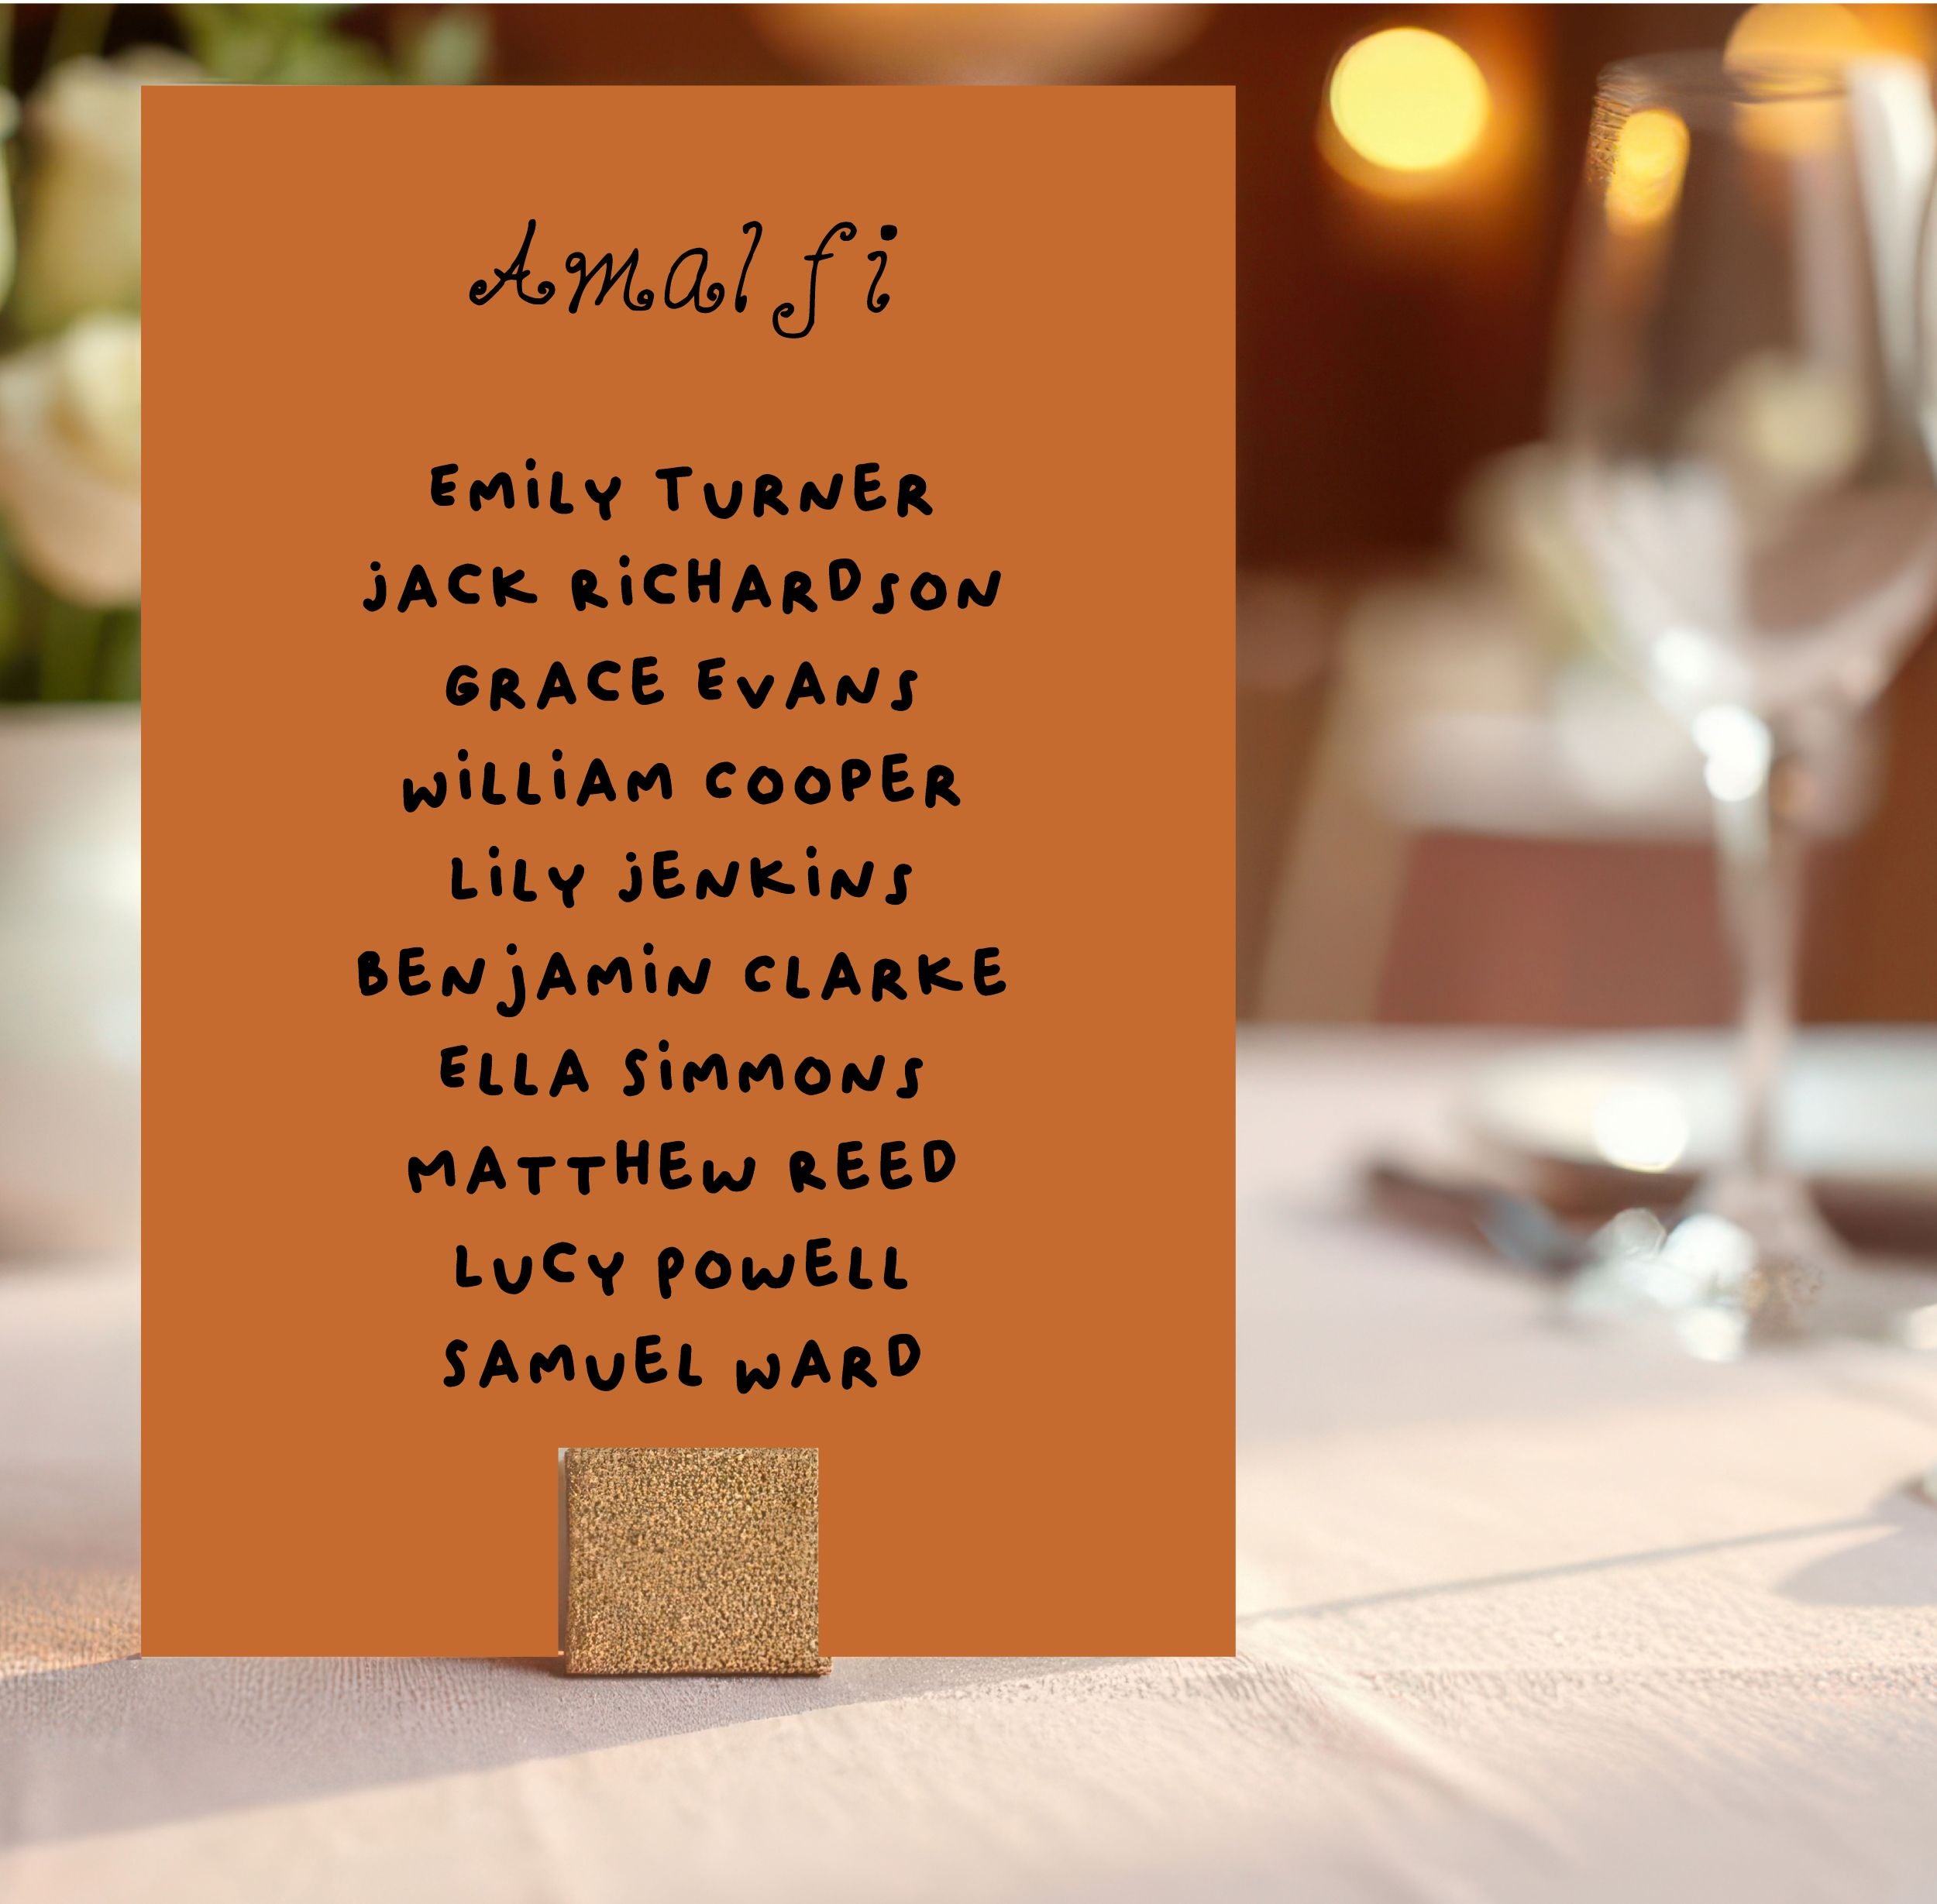 Amalfi
EMiLY TURNER
jACK RiCHARDSON
GRACE EVANS
WiLLiAM COOPER
LiLY jENKiNS
BENjAMiN CLARKE
ELLA SiMMONS
MATTHEW REED
LUCY POWELL
SAMUEL WARD